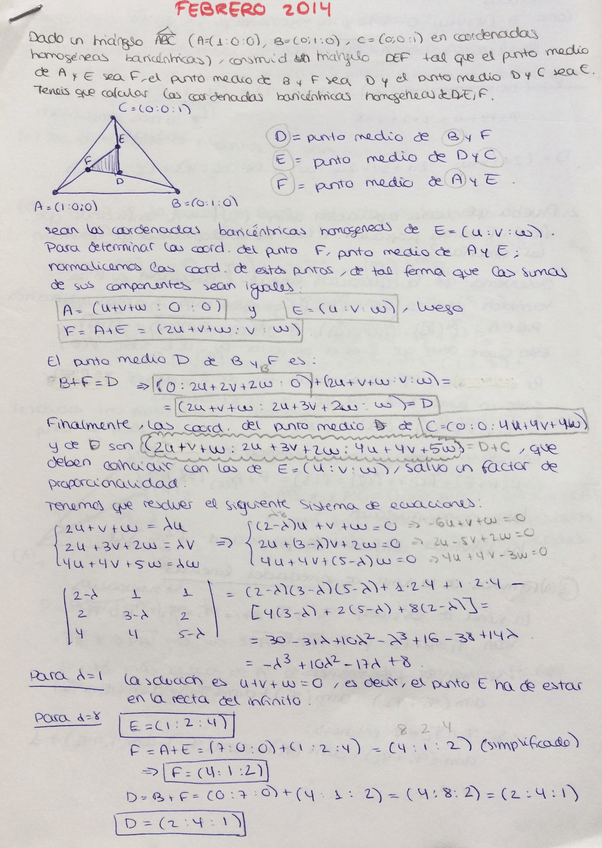 FEBRERO 2014
Dado un triángulo ABC (A=(1:0:0), B=(0:1:0), C=(0:0:1) en coordenadas
homogéneas baricéntricas), construid un triángulo DEF tal que el punto medio
de A y E sea F, el punto medio de B y F sea D y el punto medio D y C sea E.
Teneis que calcular las coordenadas baricéntricas homogéneas de D, E, F.
C=(0:0:1)
E
F
D
A=(1:0:0)
B=(0:1:0)
D = punto medio de B y F
E = punto medio de D y C
F = punto medio de A y E.
sean las coordenadas baricéntricas homogéneas de E=(u:v:w).
Para determinar las coord. del punto F, pnto medio de A y E;
normalicemos las coord. de estos puntos, de tal forma que las sumas
de sus componentes sean iguales:
A=(u+v+w:0:0) y E=(u:v:w), luego
F=A+E=(2u+v+w:v:w)
El punto medio D de B y F es:
B+F=D ⇒ (0:2u+2v+2w:0)+(2u+v+w:v:w)=
=(2u+v+w:2u+3v+2w:w)=D
Finalmente, las coord. del punto medio de C=(0:0:4u+4v+4w)
y de D son (2u+v+w:2u+3v+2w:4u+4v+5w)=D+C, que
deben coincidir con las de E=(u:v:w), salvo un factor de
proporcionalidad:
Tenemos que resolver el siguiente sistema de ecuaciones:
2u+v+w=λu ⇒ (2-λ)u+v+w=0 ⇒ -6u+v+w=0
2u+3v+2w=λv 2u+(3-λ)v+2w=0 ⇒ 2u-5v+2w=0
4u+4v+5w=λw 4u+4v+(5-λ)w=0 ⇒ 4u+4v-3w=0
2-λ 1 1 = (2-λ)(3-λ)(5-λ)+1·2·4+1·2·4-
2 3-λ 2 [4(3-λ)+2(5-λ)+8(2-λ)]=
4 4 5-λ = 30-31λ+10λ²-λ³+16-38+14λ
= -λ³+10λ²-17λ+8.
Para λ=1 la solución es u+v+w=0, es decir, el punto E ha de estar
en la recta del infinito.
Para λ=8 E=(1:2:4) 8 2 4
F=A+E=(7:0:0)+(1:2:4)=(4:1:2) (simplificado)
⇒ F=(4:1:2)
D=B+F=(0:7:0)+(4:1:2)=(4:8:2)=(2:4:1)
D=(2:4:1)